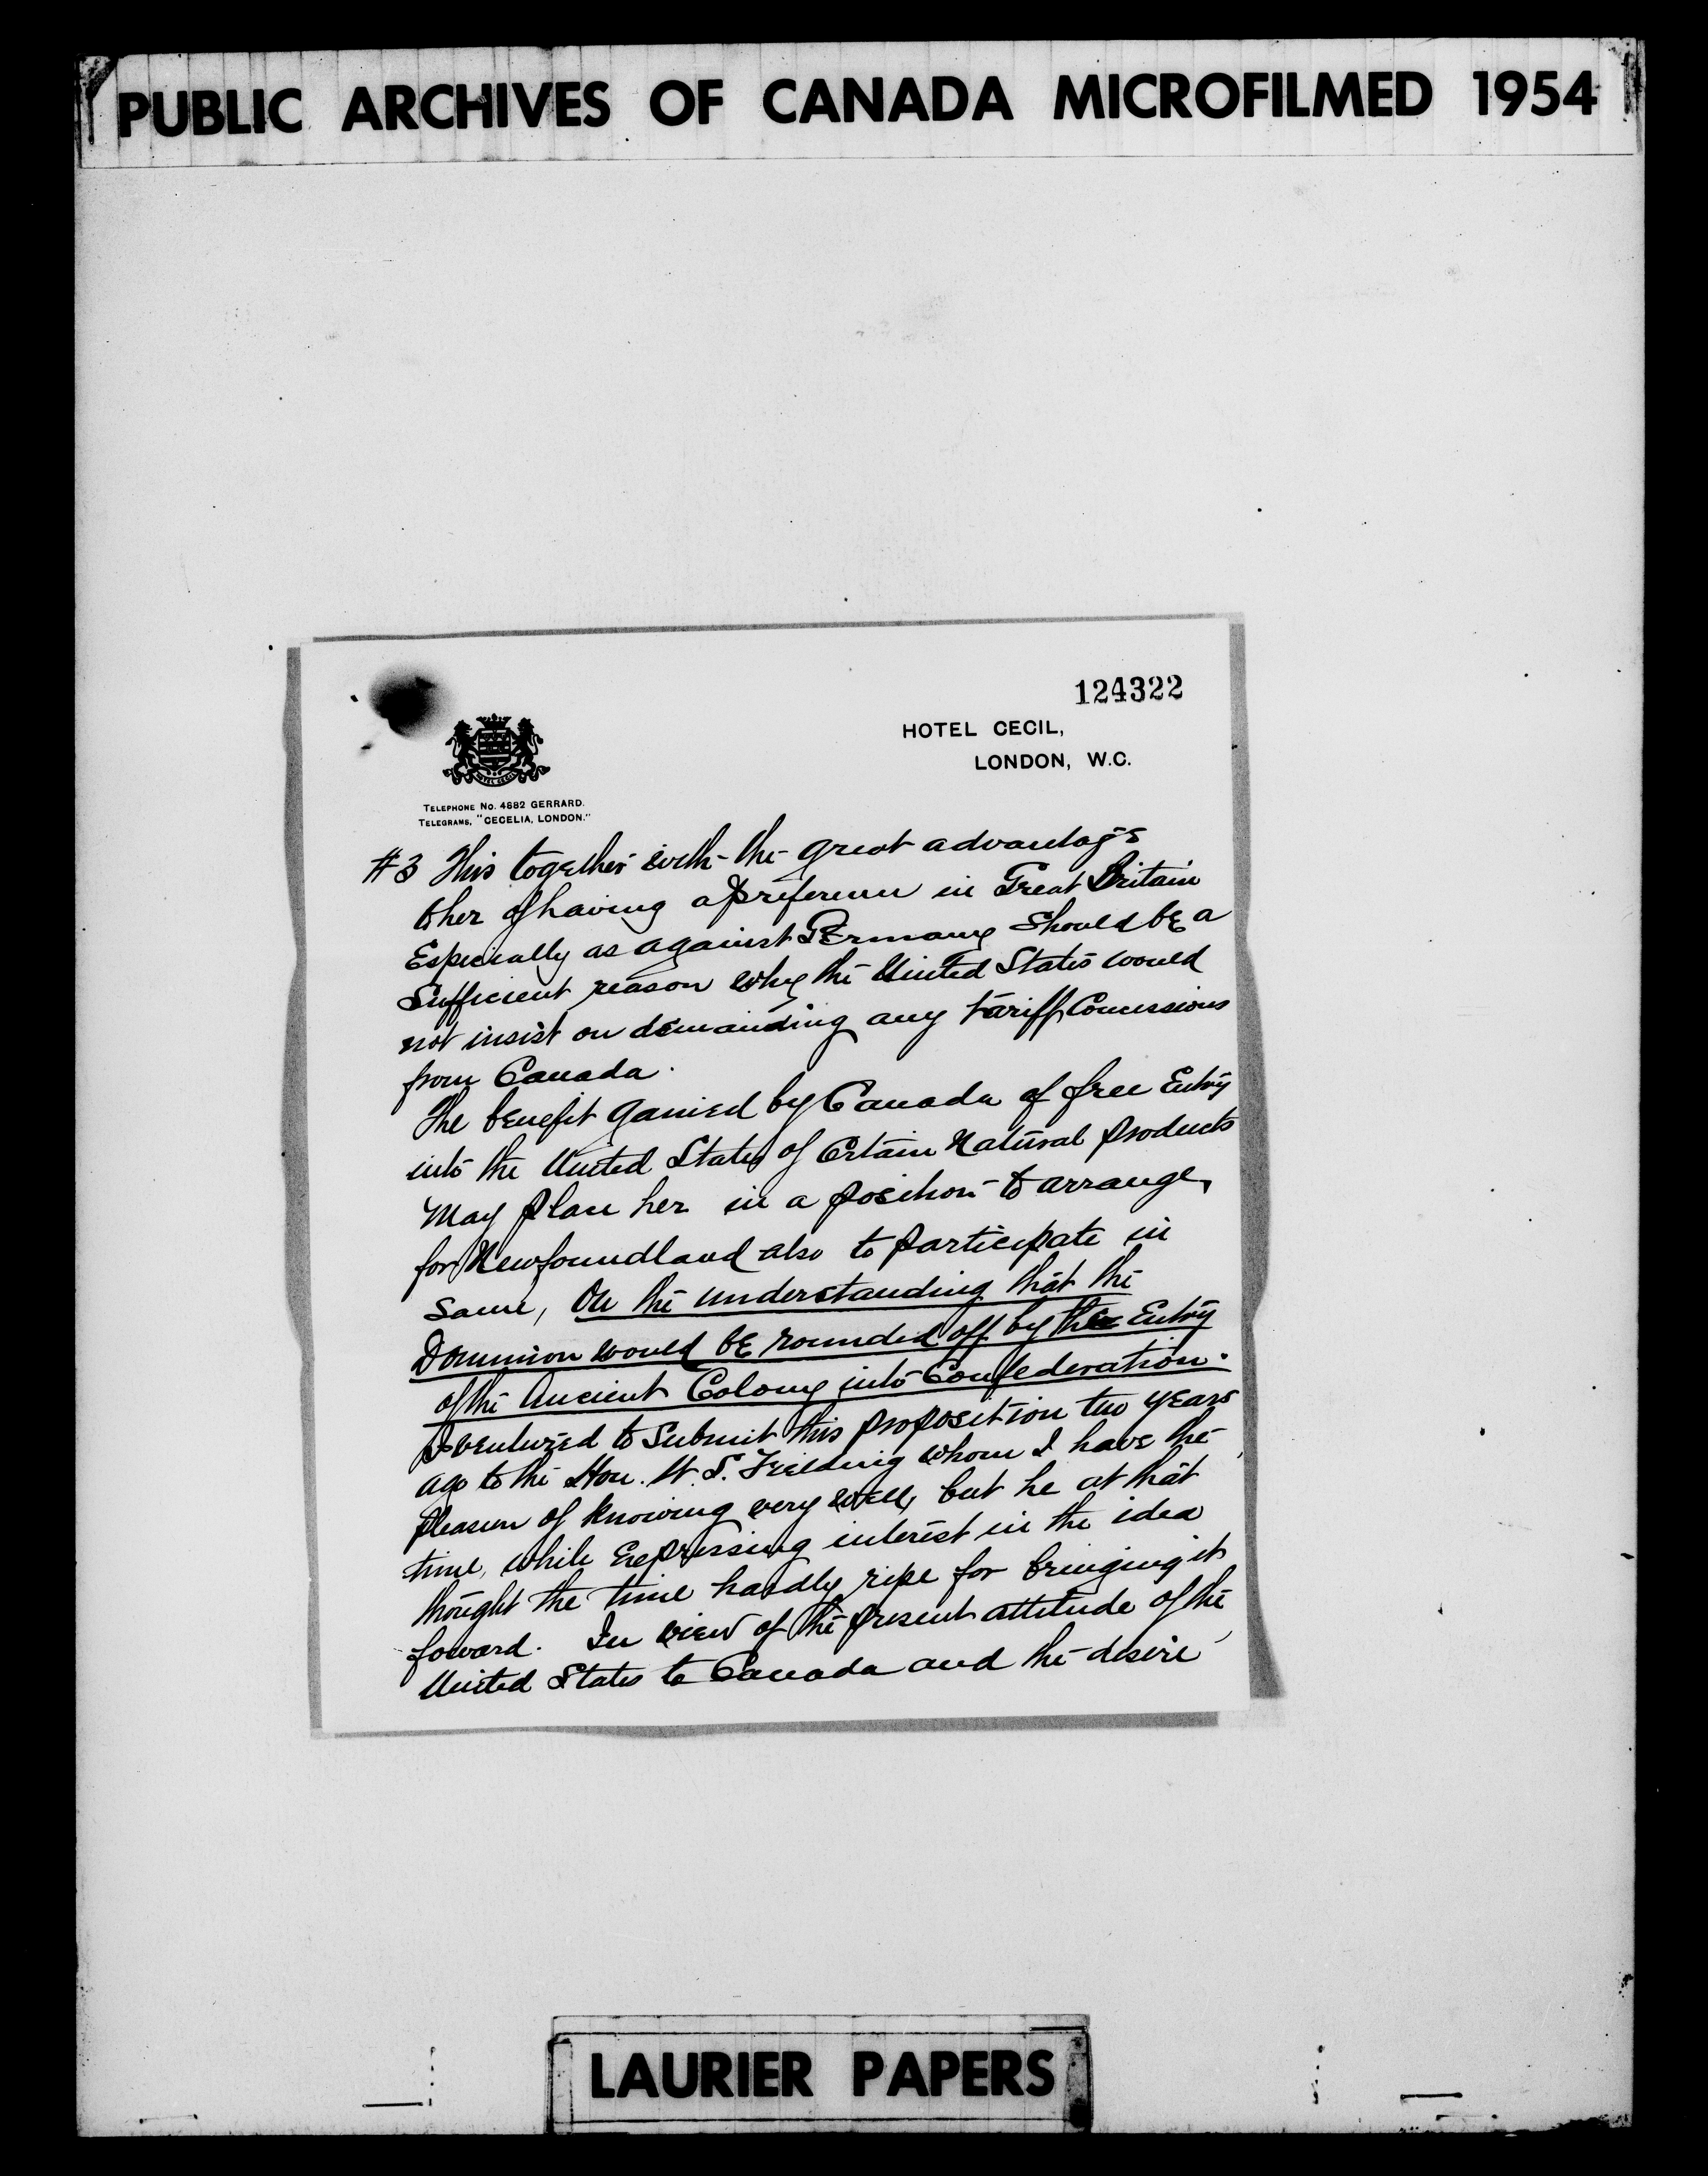 PUBLIC ARCHIVES OF CANADA MICROFILMED 1954
124322
HOTEL CECIL,
LONDON, W.C.
HOTEL CECIL
TELEPHONE No. 4882 GERRARD.
TELEGRAMS, "CECELIA, LONDON."
#3 This together with the great advantages
to her of having a preference in Great Britain
Especially as against Germany should be a
Sufficient reason why the United States would
not insist on demanding any tariff Concessions
from Canada.
The benefit gained by Canada of free Entry
into the United States of Certain Natural products
May place her in a position to arrange,
for Newfoundland also to participate in
same, On the understanding that the
Dominion would be rounded off by the Entry
of the Ancient Colony into Confederation.
I ventured to Submit this proposition two years
ago to the Hon. W. S. Fielding whom I have the
pleasure of knowing very well, but he at that
time, while Expressing interest in the idea
thought the time hardly ripe for bringing it
foward. In view of the present attitude of the
United States to Canada and the desire
LAURIER PAPERS